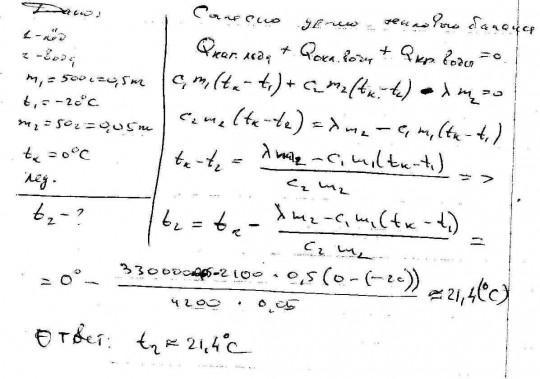 Дано:
1-лёд
2-вода
m₁ = 500г = 0,5кг
t₁ = -20°C
m₂ = 50г = 0,05кг
tк = 0°C
лёд.
t₂ - ?
Согласно ур-ию теплового баланса
Qнаг. льда + Qохл. воды + Qкр. воды = 0.
c₁m₁(tк - t₁) + c₂m₂(tк - t₂) - λm₂ = 0
c₂m₂(tк - t₂) = λm₂ - c₁m₁(tк - t₁)
tк - t₂ = (λm₂ - c₁m₁(tк - t₁)) / (c₂m₂) =>
t₂ = tк - (λm₂ - c₁m₁(tк - t₁)) / (c₂m₂) =
= 0° - (330000 · 0,05 - 2100 · 0,5(0 - (-20))) / (4200 · 0,05) ≈ 21,4(°C)
Ответ: t₂ ≈ 21,4°C